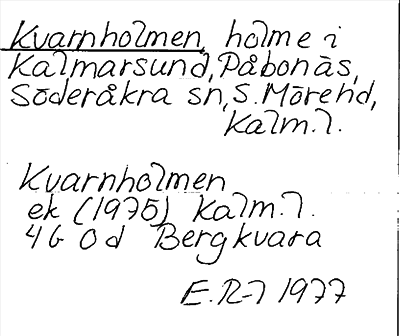 Kvarnholmen, holme i
Kalmarsund, Påbonäs,
Söderåkra sn, S. Möre hd,
Kalm. l.
Kvarnholmen
ek (1975) Kalm. l.
4G 0d Bergkvara
E. R-7 1977